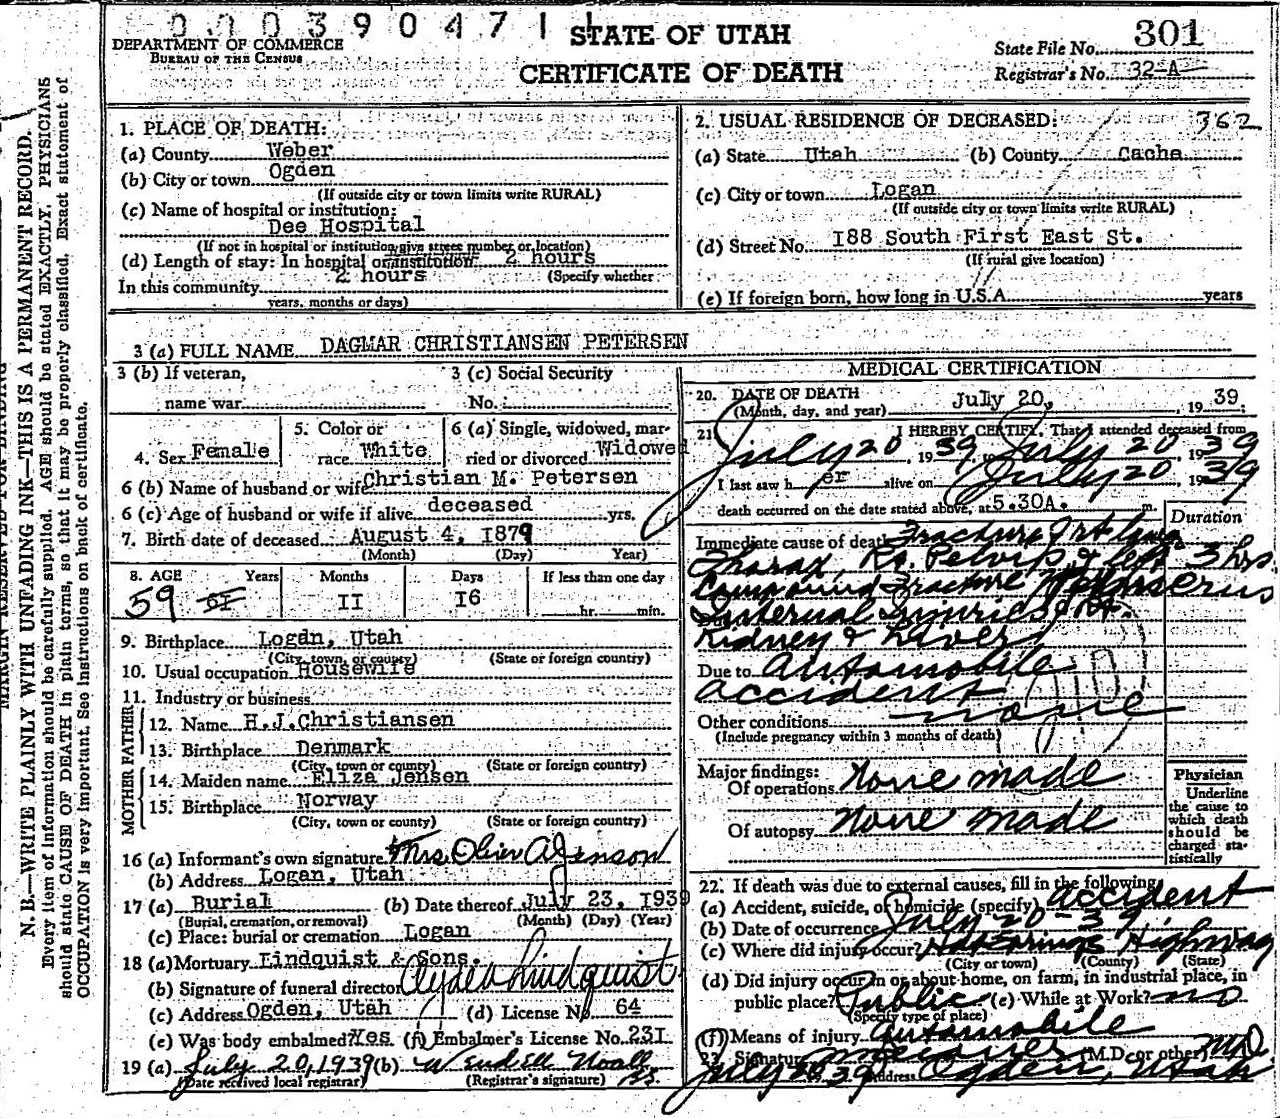 000390471
STATE OF UTAH
CERTIFICATE OF DEATH
DEPARTMENT OF COMMERCE
BUREAU OF THE CENSUS
State File No. 301
Registrar's No. 32-A
1. PLACE OF DEATH:
(a) County Weber
(b) City or town Ogden
(If outside city or town limits write RURAL)
(c) Name of hospital or institution:
Dee Hospital
(If not in hospital or institution, give street number or location)
(d) Length of stay: In hospital or institution 2 hours
(Specify whether
In this community 2 hours
years, months or days)
2. USUAL RESIDENCE OF DECEASED: 362
(a) State Utah (b) County Cache
(c) City or town Logan
(If outside city or town limits write RURAL)
(d) Street No. 188 South First East St.
(If rural give location)
(e) If foreign born, how long in U.S.A. years
3 (a) FULL NAME DAGMAR CHRISTIANSEN PETERSEN
3 (b) If veteran,
name war
3 (c) Social Security
No.
4. Sex Female
5. Color or
race White
6 (a) Single, widowed, mar-
ried or divorced Widowed
6 (b) Name of husband or wife Christian M. Petersen
6 (c) Age of husband or wife if alive deceased yrs.
7. Birth date of deceased August 4, 1879
(Month) (Day) Year)
8. AGE Years Months Days If less than one day
59 61 11 16 hr. min.
9. Birthplace Logan, Utah
(City, town, or county) (State or foreign country)
10. Usual occupation Housewife
11. Industry or business
FATHER
12. Name H.J.Christiansen
13. Birthplace Denmark
(City, town or county) (State or foreign country)
MOTHER
14. Maiden name Eliza Jensen
15. Birthplace Norway
(City, town or county) (State or foreign country)
16 (a) Informant's own signature Mrs. Oliver A Jenson
(b) Address Logan, Utah
17 (a) Burial (b) Date thereof July 23, 1939
(Burial, cremation, or removal) (Month) (Day) (Year)
(c) Place: burial or cremation Logan
18 (a) Mortuary Lindquist & Sons.
(b) Signature of funeral director Clyde Lindquist
(c) Address Ogden, Utah (d) License No. 64
(e) Was body embalmed? Yes (f) Embalmer's License No. 231
19 (a) July 20, 1939 (b) Wendell Noall
(Date received local registrar) (Registrar's signature)
MEDICAL CERTIFICATION
20. DATE OF DEATH
(Month, day, and year) July 20, 19 39;
21. I HEREBY CERTIFY, That I attended deceased from
July 20, 19 39 to July 20 1939
I last saw h er alive on July 20, 1939
death occurred on the date stated above, at 5.30A. m.
Duration
Immediate cause of death Fracture
Thorax, Rt Pelvis & left 3 hrs.
Compound Fracture Humserus
Internal Injuries Rt.
Kidney & Liver
Due to Automobile
accident
Other conditions none
(Include pregnancy within 3 months of death)
Major findings:
Of operations None made
Of autopsy None made
Physician
Underline
the cause to
which death
should be
charged sta-
tistically
22. If death was due to external causes, fill in the following:
(a) Accident, suicide, or homicide (specify) accident
(b) Date of occurrence July 20-39
(c) Where did injury occur? Hot Springs Highway
(City or town) (County) (State)
(d) Did injury occur in or about home, on farm, in industrial place, in
public place? Public (e) While at Work? no
(Specify type of place)
(f) Means of injury automobile
23. Signature (M.D. or other) MD
July 20 39 Address Ogden, Utah
MARGIN RESERVED FOR BINDING
N. B.—WRITE PLAINLY WITH UNFADING INK—THIS IS A PERMANENT RECORD.
Every item of information should be carefully supplied. AGE should be stated EXACTLY. PHYSICIANS
should state CAUSE OF DEATH in plain terms, so that it may be properly classified. Exact statement of
OCCUPATION is very important. See instructions on back of certificate.